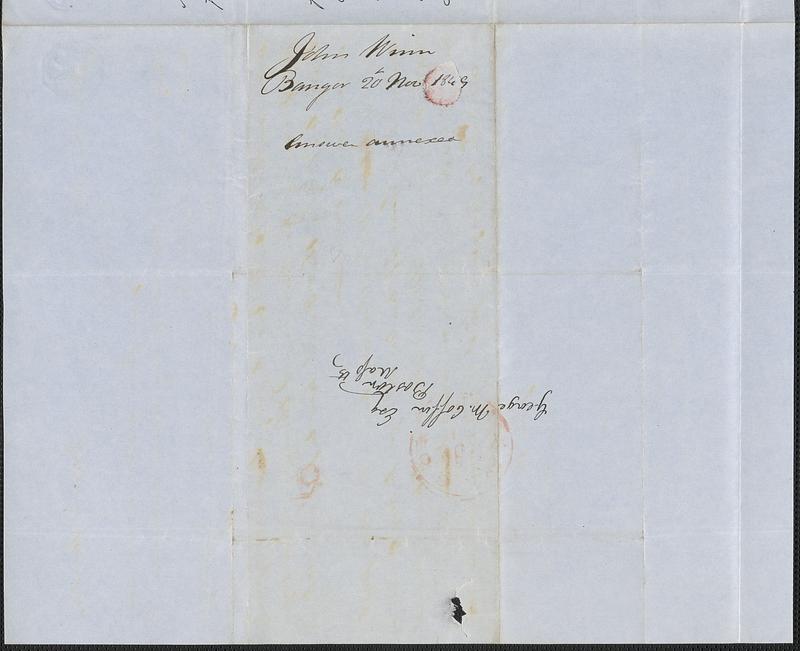 John Winn
Bangor 20 Nov 1849
Answer annexed
George W. Coffin Esq
Boston
Mass tts